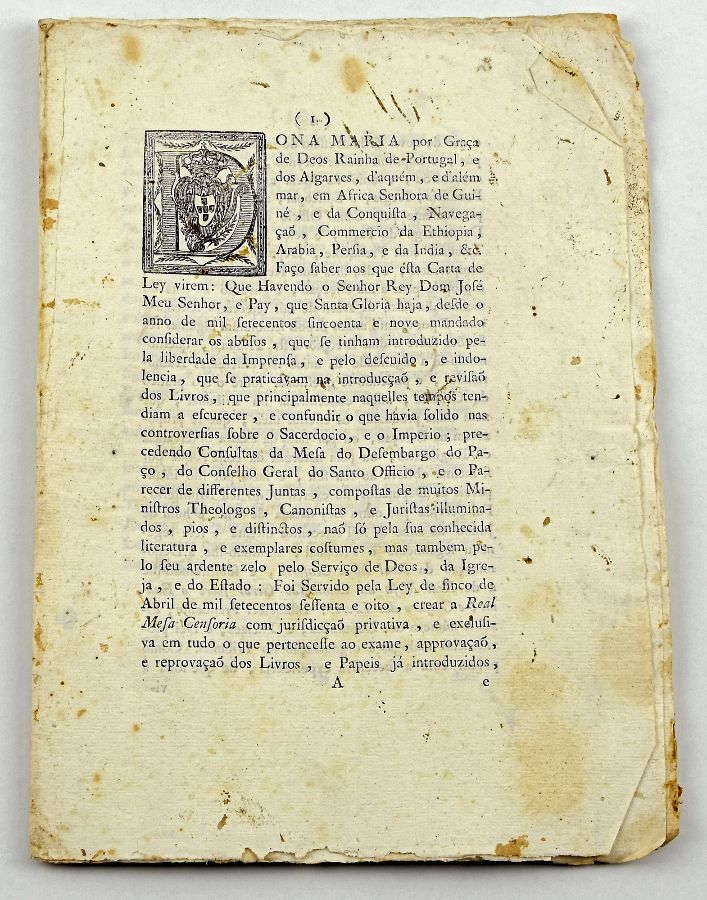 ( 1. )
DONA MARIA por Graça
de Deos Rainha de Portugal, e
dos Algarves, d'aquém, e d'além
mar, em Africa Senhora de Gui-
né, e da Conquiſta, Navega-
çaõ, Commercio da Ethiopia,
Arabia, Perſia, e da India, &c.
Faço ſaber aos que éſta Carta de
Ley virem: Que Havendo o Senhor Rey Dom Joſé
Meu Senhor, e Pay, que Santa Gloria haja, deſde o
anno de mil ſetecentos ſincoenta e nove mandado
conſiderar os abuſos, que ſe tinham introduzido pe-
la liberdade da Imprenſa, e pelo deſcuido, e indo-
lencia, que ſe praticavam na introducçaõ, e reviſaõ
dos Livros, que principalmente naquelles tempos ten-
diam a eſcurecer, e confundir o que havia ſolido nas
controverſias ſobre o Sacerdocio, e o Imperio; pre-
cedendo Conſultas da Meſa do Deſembargo do Pa-
ço, do Conſelho Geral do Santo Officio, e o Pa-
recer de differentes Juntas, compoſtas de muitos Mi-
niſtros Theologos, Canoniſtas, e Juriſtas illumina-
dos, pios, e diſtinctos, naõ ſó pela ſua conhecida
literatura, e exemplares coſtumes, mas tambem pe-
lo ſeu ardente zelo pelo Serviço de Deos, da Igre-
ja, e do Eſtado: Foi Servido pela Ley de ſinco de
Abril de mil ſetecentos ſeſſenta e oito, crear a Real
Meſa Cenſoria com juriſdicçaõ privativa, e excluſi-
va em tudo o que pertenceſſe ao exame, approvaçaõ,
e reprovaçaõ dos Livros, e Papeis já introduzidos,
A e